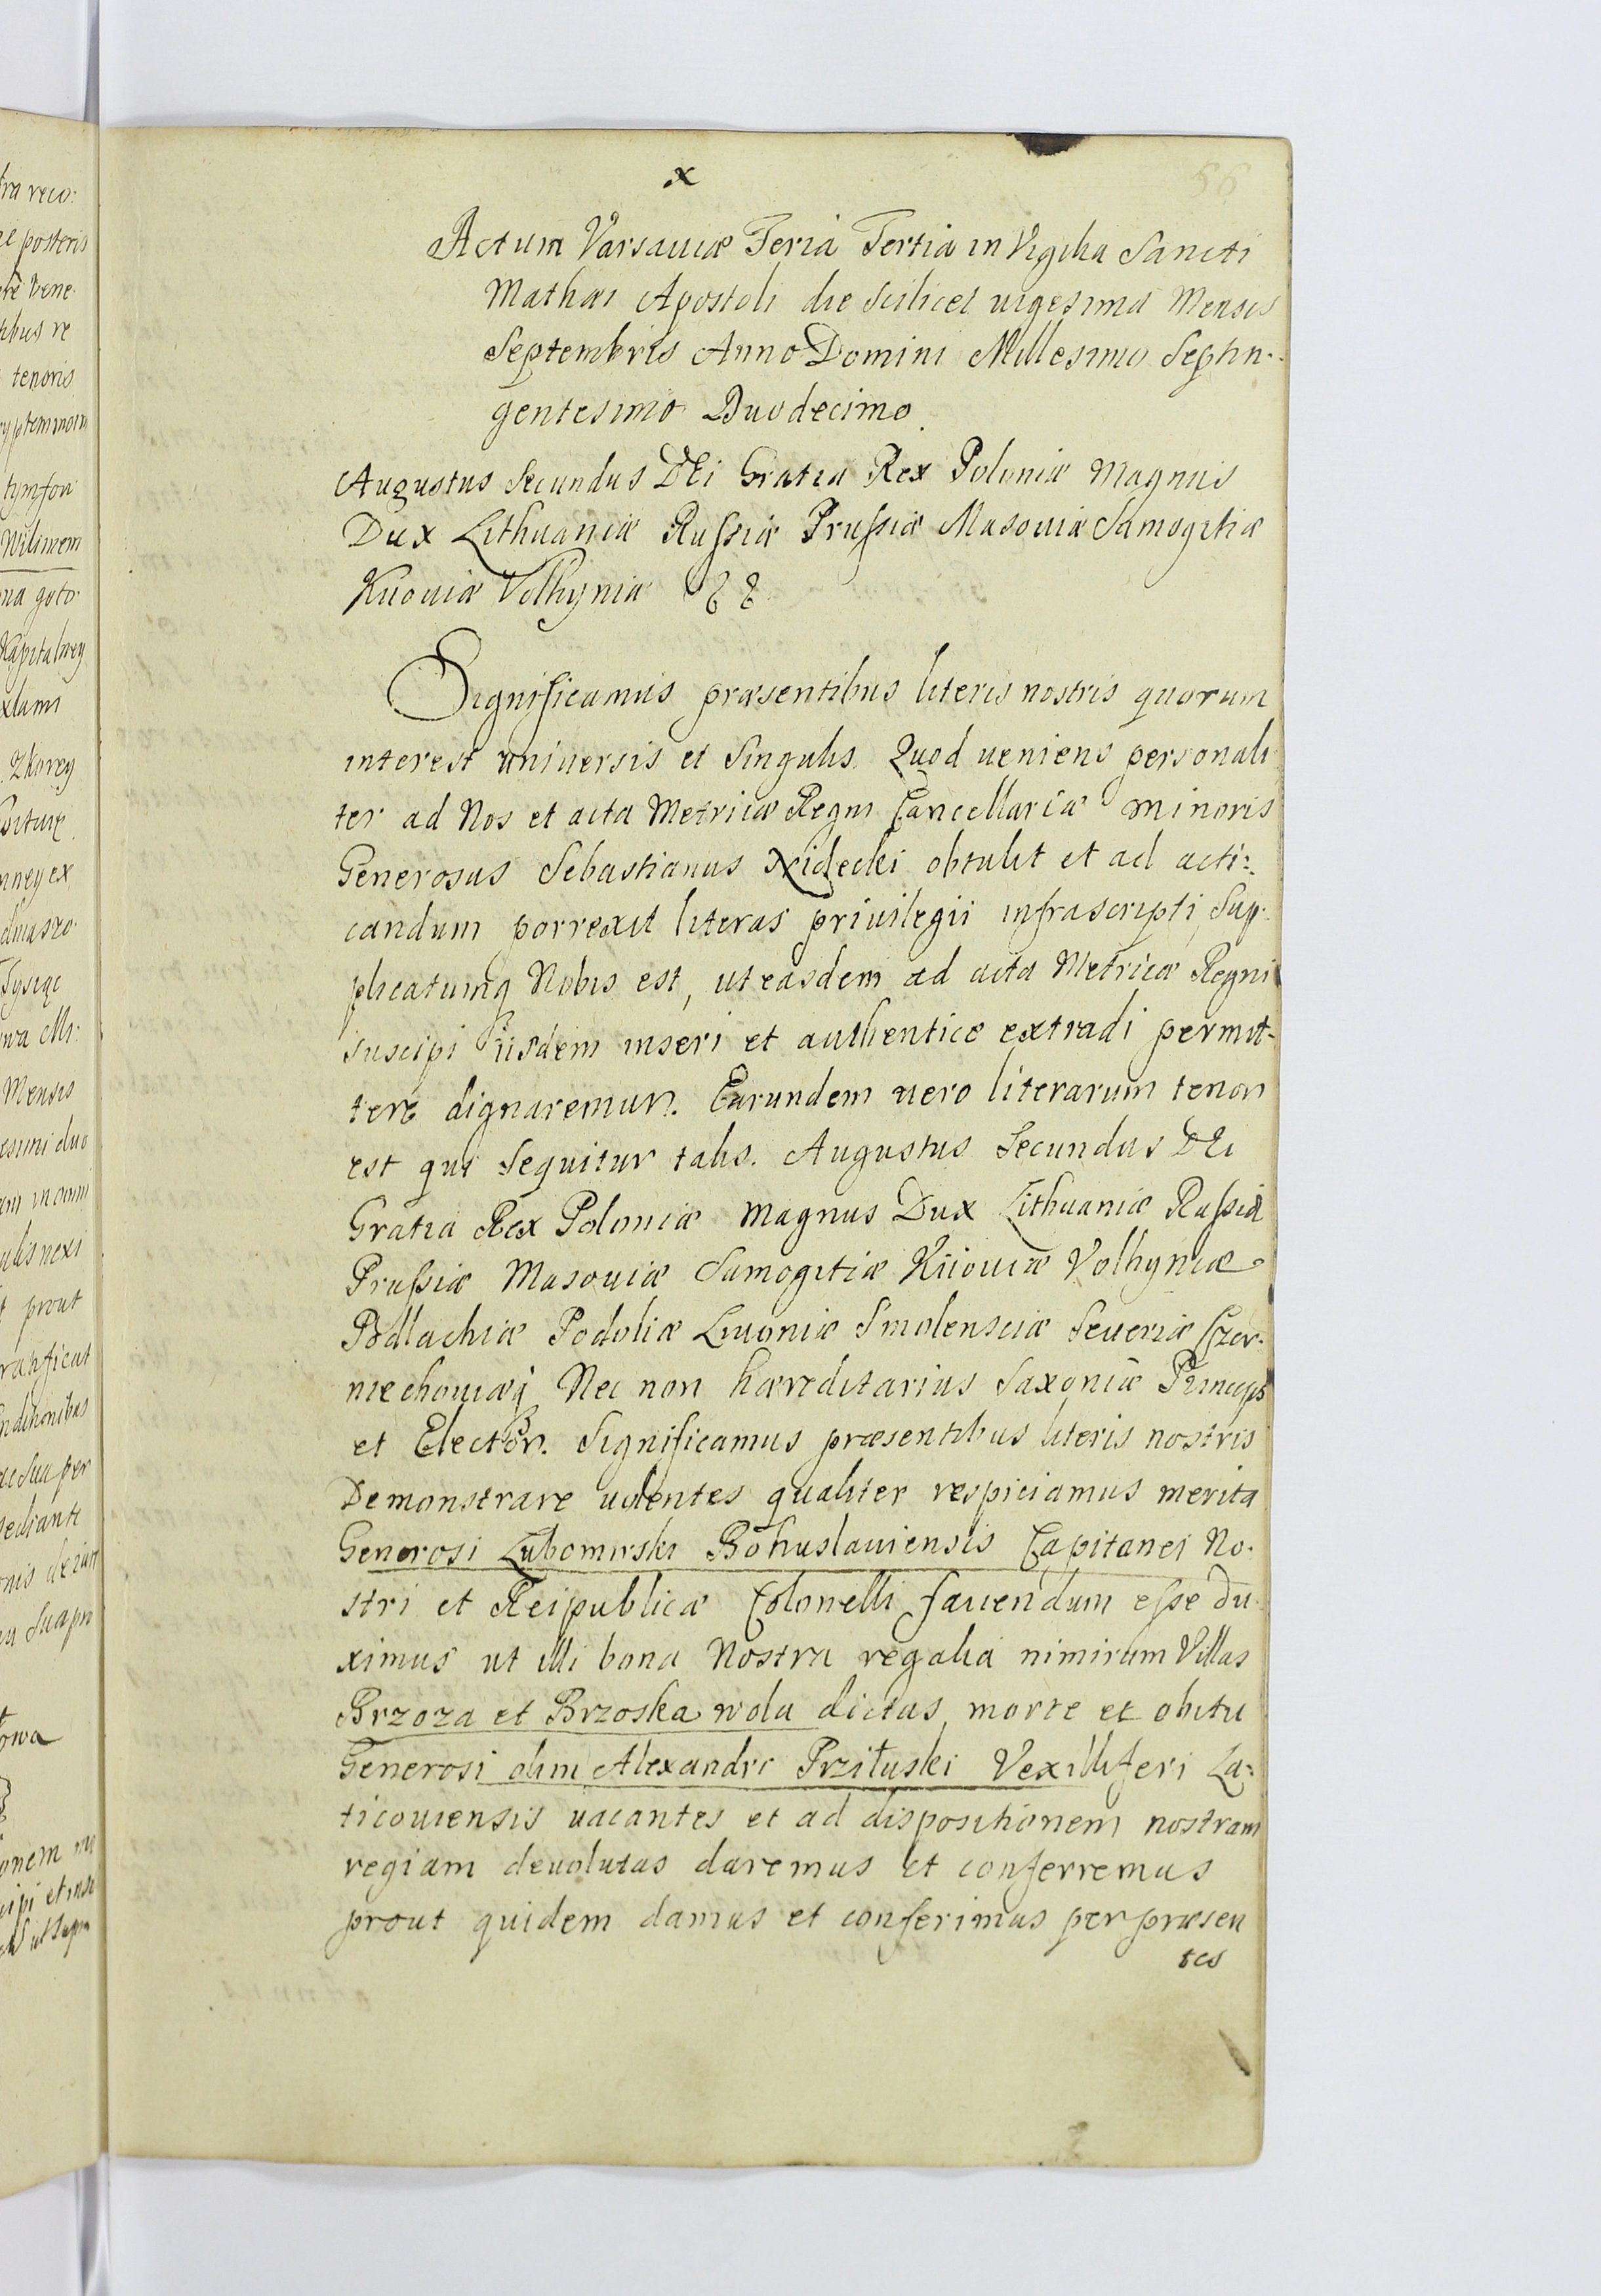 x
56
Actum Varsaviæ Feria Tertia in Vigilia Sancti
Mathæi Apostoli die scilicet vigesima Mensis
Septembris Anno Domini Millesimo Septin-
gentesimo Duodecimo.
Augustus Secundus DEi Gratia Rex Poloniæ Magnus
Dux Lithuaniæ Russiæ Prussiæ Masoviæ Samogitiæ
Kiioviæ Volhyniæ & &
Significamus præsentibus literis nostris quorum
interest universis et singulis. Quod ueniens personali
ter ad Nos et acta Metricæ Regni Cancellariæ minoris
Generosus Sebastianus obtulit et ad acti-
candum porrexit literas priuilegii infrascripti, sup-
plicatumq Nobis est, ut easdem ad acta Metricæ Regni
suscipi iisdem inseri et authentice extradi permit-
tere dignaremur. Earundem uero literarum tenor
est qui sequitur talis. Augustus Secundus DEi
Gratia Rex Poloniæ Magnus Dux Lithuaniæ Russiæ
Prussiæ Masouiæ Samogitiæ Kiiouiæ Volhyniæ
Podlachiæ Podoliæ Liuoniæ Smolensciæ Seueriæ Czer-
niechouiæq Nec non hæreditarius Saxoniæ Princeps
et Elector. Significamus præsentibus literis nostris
Demonstrare uolentes qualiter respiciamus merita
Generosi Lubomirski Bohuslauiensis Capitanei No-
stri et Reipublicæ Colonelli fauendum esse du-
ximus ut illi bona Nostra regalia nimirum Villas
Brzoza et Brzoska wola dictas, morte et obitu
Generosi olim Alexandri Prziłuski Vexilliferi La-
ticouiensis uacantes et ad dispositionem nostram
regiam deuolutas daremus et conferremus
prout quidem damus et conferimus per præsen
tes